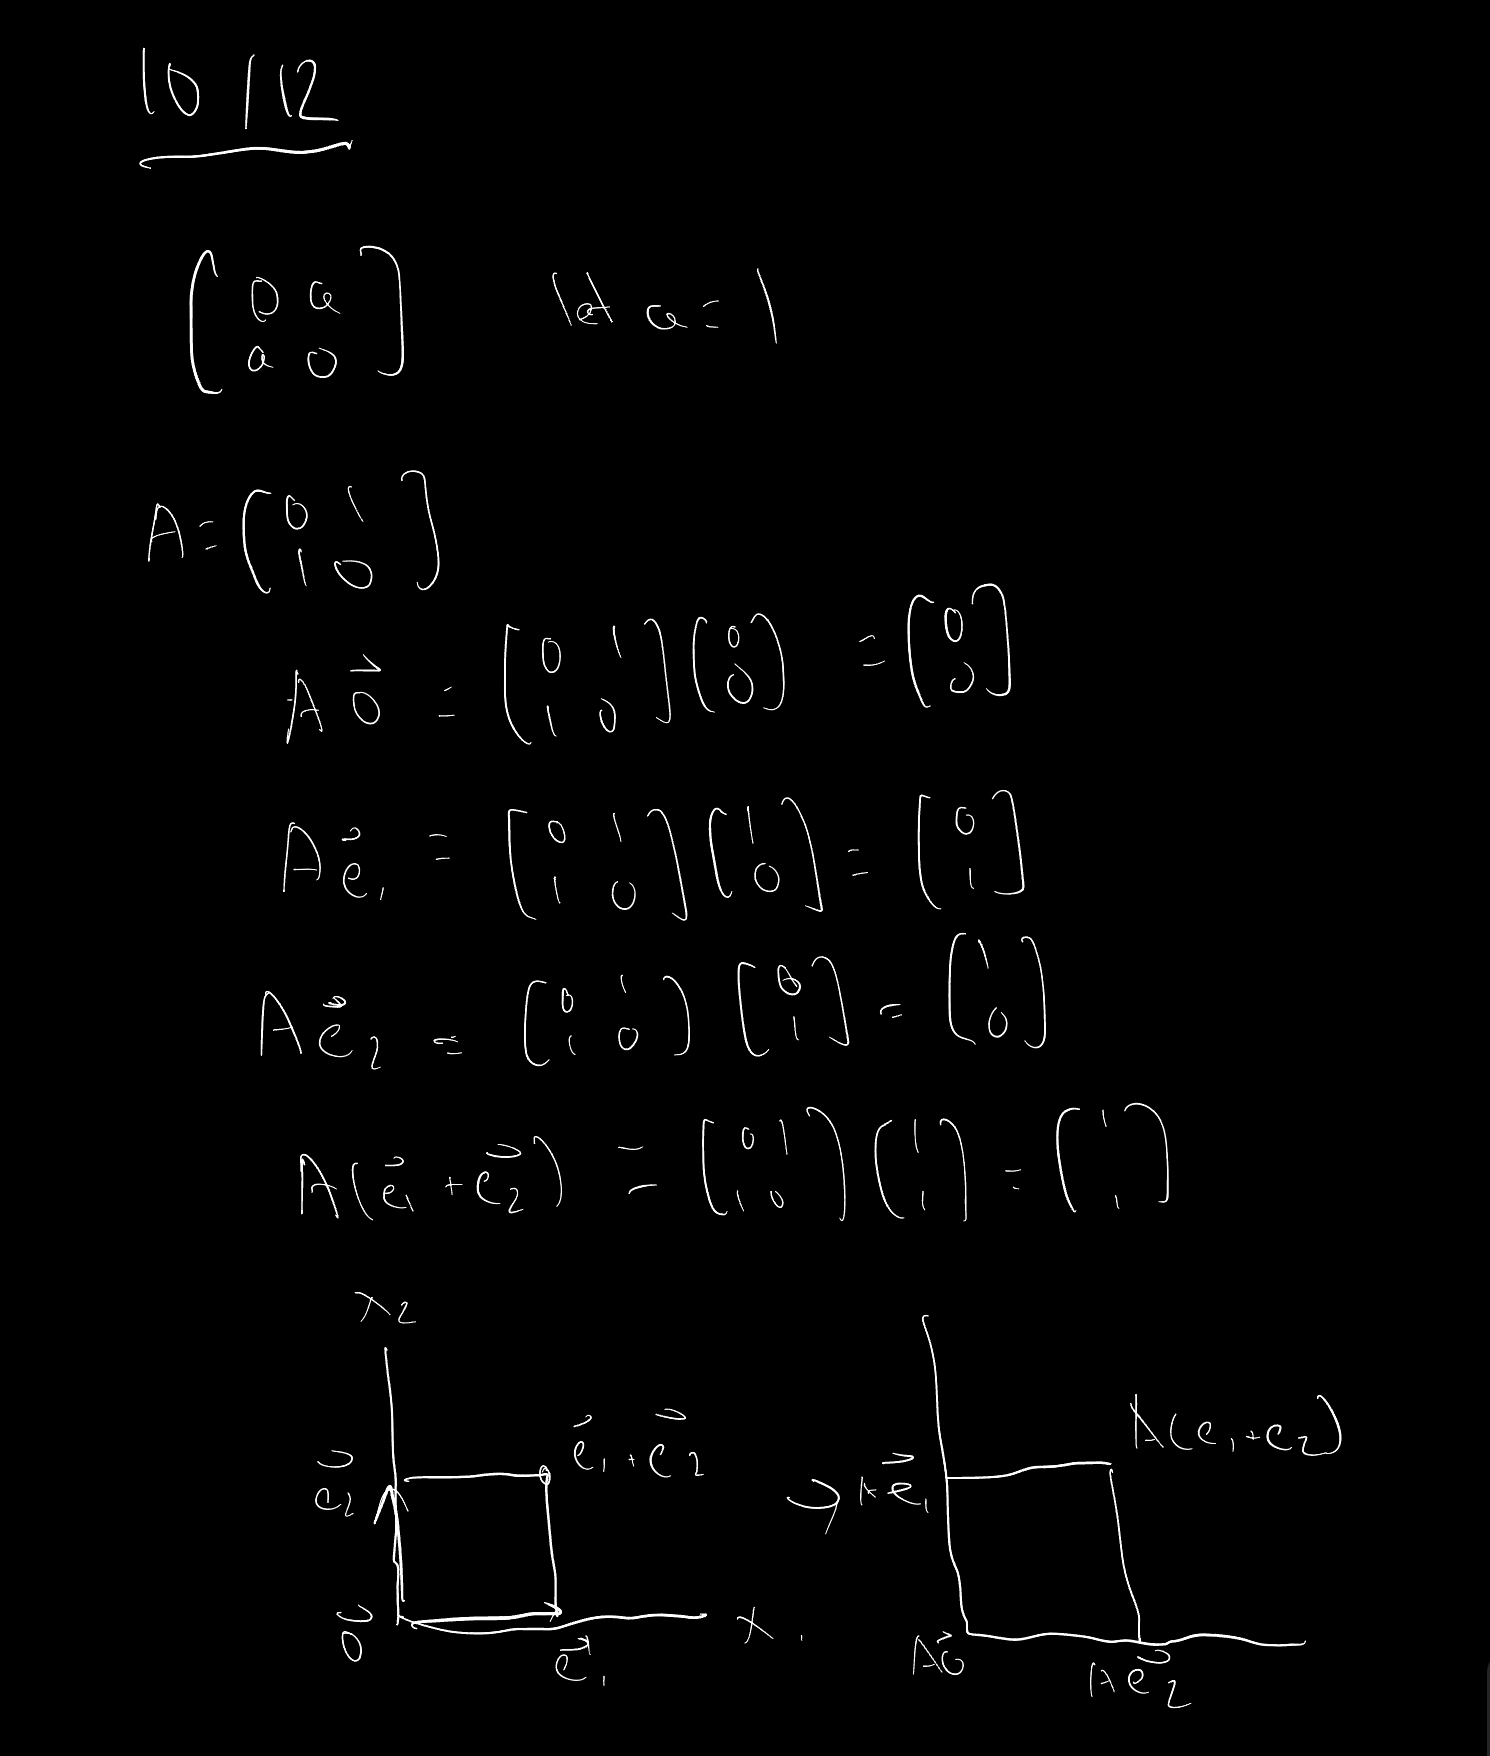 10/12
[0 a
a 0] let a = 1
A = [0 1
1 0]
A0⃗ = [0 1
1 0] [0
0] = [0
0]
Ae⃗₁ = [0 1
1 0] [1
0] = [0
1]
Ae⃗₂ = [0 1
1 0] [0
1] = [1
0]
A(e⃗₁ + e⃗₂) = [0 1
1 0] [1
1] = [1
1]
x₂
e⃗₁ + e⃗₂
e⃗₂
0⃗
e⃗₁
x₁
→
A(e₁+e₂)
Ae⃗₁
A0⃗
Ae⃗₂